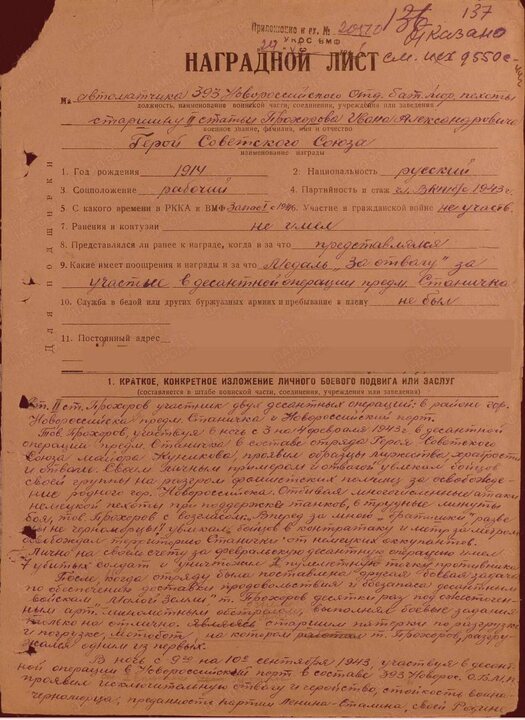 137
136
Приложение к вх. № 20570
УКОС ВМФ
Отказано
см. исх 9550с
НАГРАДНОЙ ЛИСТ
На автоматчика 393 Новороссийского Отд. бат. мор. пехоты
должность, наименование воинской части, соединения, учреждения или заведения
старшину II статьи Прохорова Ивана Александровича
военное звание, фамилия, имя и отчество
Герой Советского Союза
наименование награды
1. Год рождения 1914 2. Национальность русский
3. Соцположение рабочий 4. Партийность и стаж чл. ВКП(б) с 1943 г.
5. С какого времени в РККА и ВМФ 6. Участие в гражданской войне не участв.
7. Ранения и контузии не имел
8. Представлялся ли ранее к награде, когда и за что представлялся
9. Какие имеет поощрения и награды и за что Медаль „За отвагу" за
участие в десантной операции предм. Станичка
10. Служба в белой или других буржуазных армиях и пребывание в плену не был
11. Постоянный адрес
1. КРАТКОЕ, КОНКРЕТНОЕ ИЗЛОЖЕНИЕ ЛИЧНОГО БОЕВОГО ПОДВИГА ИЛИ ЗАСЛУГ
(составляется в штабе воинской части, соединения, учреждения или заведения)
Ст. II ст. Прохоров участник двух десантных операций: в районе гор.
Новороссийска предм. Станичка и Новороссийский порт.
Тов. Прохоров участвуя в ночь с 3 на 4 февраля 1943 г. в десантной
операции предм. Станичка в составе отряда Героя Советского
Союза майора Куникова, проявил образцы мужества, храбрости
и отваги. Своим личным примером и отвагой увлекал бойцов
своей группы на разгром фашистских полчищ за освобожде-
ние родного гор. Новороссийска. Отбивая многочисленные атаки
немецкой пехоты при поддержке танков, в трудные минуты
боя, тов. Прохоров с возгласом: Вперед за мной „братишки" разве
вы не черноморцы! увлекал бойцов в контратаку и метр за метром
освобождал территорию Станички от немецких оккупантов.
Лично на своем счету за февральскую десантную операцию имел
7 убитых солдат и уничтожил 2 пулеметную точки противника
После, когда отряду была поставлена другая боевая задача
по обеспечению доставки продовольствия и боезапаса десантным
войскам „Малой Земли" т. Прохоров десятки раз под ожесточен-
ным арт-минометным обстрелом, выполнял боевые задания
только на отлично. Являясь старшим пятерки по разгрузке
и погрузке, мотобот, на котором работал т. Прохоров, разгру-
жался одним из первых.
В ночь с 9го на 10е сентября 1943, участвуя в десант-
ной операции в Новороссийский порт в составе 393 Новорос. О.Б.М.П.
проявил исключительную отвагу и геройство, стойкость воина-
черноморца, преданность партии Ленина-Сталина, своей Родине